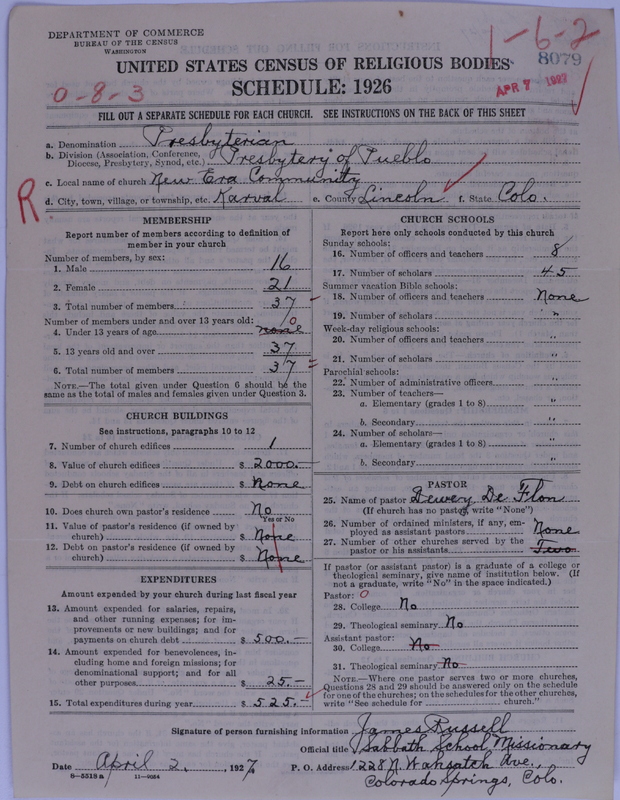 DEPARTMENT OF COMMERCE
BUREAU OF THE CENSUS
WASHINGTON
1-6-2
8079
UNITED STATES CENSUS OF RELIGIOUS BODIES
APR 7
0-8-3
SCHEDULE: 1926
FILL OUT A SEPARATE SCHEDULE FOR EACH CHURCH. SEE INSTRUCTIONS ON THE BACK OF THIS SHEET
a. Denomination Presbyterian
b. Division (Association, Conference, Diocese, Presbytery, Synod, etc.) Presbytery of Pueblo
c. Local name of church New Era Community
R
d. City, town, village, or township, etc. Karval e. County Lincoln f. State Colo.
MEMBERSHIP
Report number of members according to definition of
member in your church
Number of members, by sex:
1. Male 16
2. Female 21
3. Total number of members 37
Number of members under and over 13 years old:
4. Under 13 years of age none 0
5. 13 years old and over 37
6. Total number of members 37
NOTE.—The total given under Question 6 should be the
same as the total of males and females given under Question 3.
CHURCH BUILDINGS
See instructions, paragraphs 10 to 12
7. Number of church edifices 1
8. Value of church edifices $ 2000.—
9. Debt on church edifices $ None
10. Does church own pastor's residence? No
Yes or No
11. Value of pastor's residence (if owned by
church) $ None
12. Debt on pastor's residence (if owned by
church) $ None
EXPENDITURES
Amount expended by your church during last fiscal year
13. Amount expended for salaries, repairs,
and other running expenses; for im-
provements or new buildings; and for
payments on church debt $ 500.—
14. Amount expended for benevolences, in-
cluding home and foreign missions; for
denominational support; and for all
other purposes $ 25.—
15. Total expenditures during year $ 525.—
CHURCH SCHOOLS
Report here only schools conducted by this church
Sunday schools:
16. Number of officers and teachers 8
17. Number of scholars 45
Summer vacation Bible schools:
18. Number of officers and teachers None
19. Number of scholars "
Week-day religious schools:
20. Number of officers and teachers "
21. Number of scholars "
Parochial schools:
22. Number of administrative officers "
23. Number of teachers—
a. Elementary (grades 1 to 8) "
b. Secondary "
24. Number of scholars—
a. Elementary (grades 1 to 8) "
b. Secondary "
PASTOR
25. Name of pastor Dewery De Flon
(If church has no pastor, write "None")
26. Number of ordained ministers, if any, em-
ployed as assistant pastors None
27. Number of other churches served by the
pastor or his assistants Two
If pastor (or assistant pastor) is a graduate of a college or
theological seminary, give name of institution below. (If
not a graduate, write "No" in the space indicated.)
Pastor: 0
28. College No
29. Theological seminary No
Assistant pastor:
30. College No
31. Theological seminary No
NOTE.—Where one pastor serves two or more churches,
Questions 28 and 29 should be answered only on the schedule
for one of the churches; on the schedules for the other churches,
write "See schedule for church."
Signature of person furnishing information James Russell
Official title Sabbath School Missionary
Date April 2, 1927 P. O. Address 1228 N. Wahsatch Ave.,
8—5518 a 11—9024 Colorado Springs, Colo.